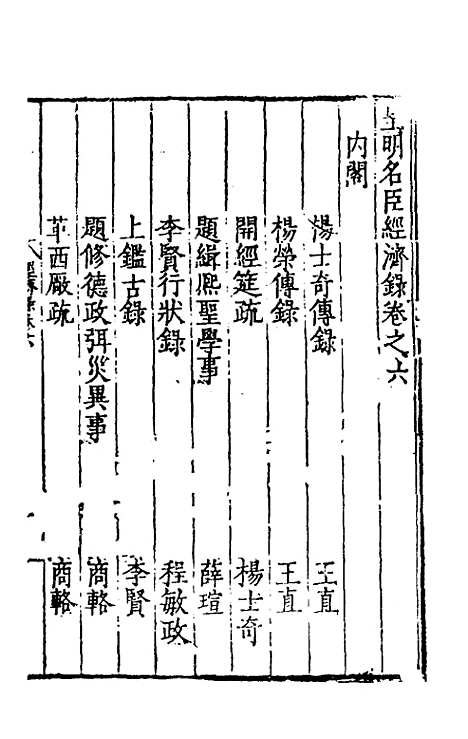 皇明名臣經濟錄卷之六
内閣
楊士奇傳錄 王直
楊榮傳錄 王直
開經筵疏 楊士奇
題緝熙聖學事 薛瑄
李賢行狀錄 程敏政
上鑑古錄 李賢
題修德政弭災異事 商輅
革西厰疏 商輅